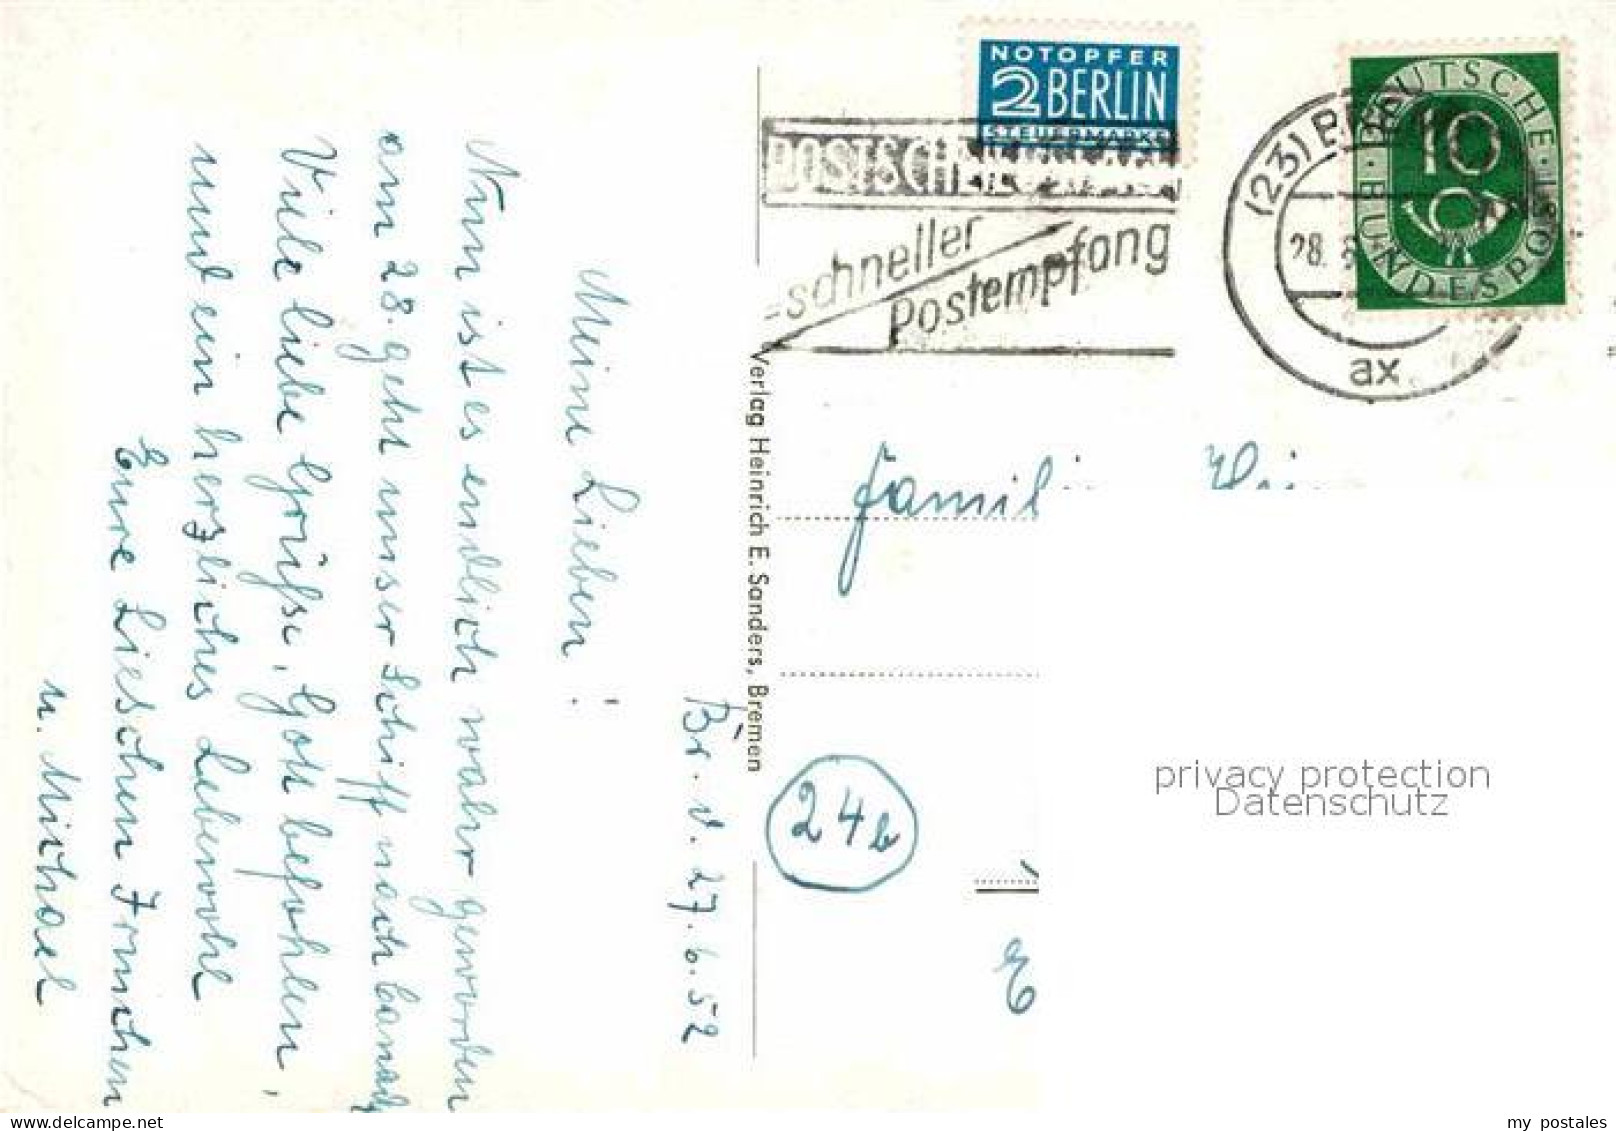 NOTOPFER
2 BERLIN
STEUERMARKE
POSTSCH
=schneller
Postempfang
(23) B
28. 6
ax
DEUTSCHE
10
BUNDESPOST
Br. d. 27. 6. 52
Meine Lieben!
Nun ist es endlich wahr geworden
am 28. geht unser Schiff nach Canada
Viele liebe Grüße, Gott befohlen,
und ein herzliches Lebewohl
Eure Lieschen Irmchen
u. Michael
Verlag Heinrich E. Sanders, Bremen
Famil
24b
E
privacy protection
Datenschutz
my postales